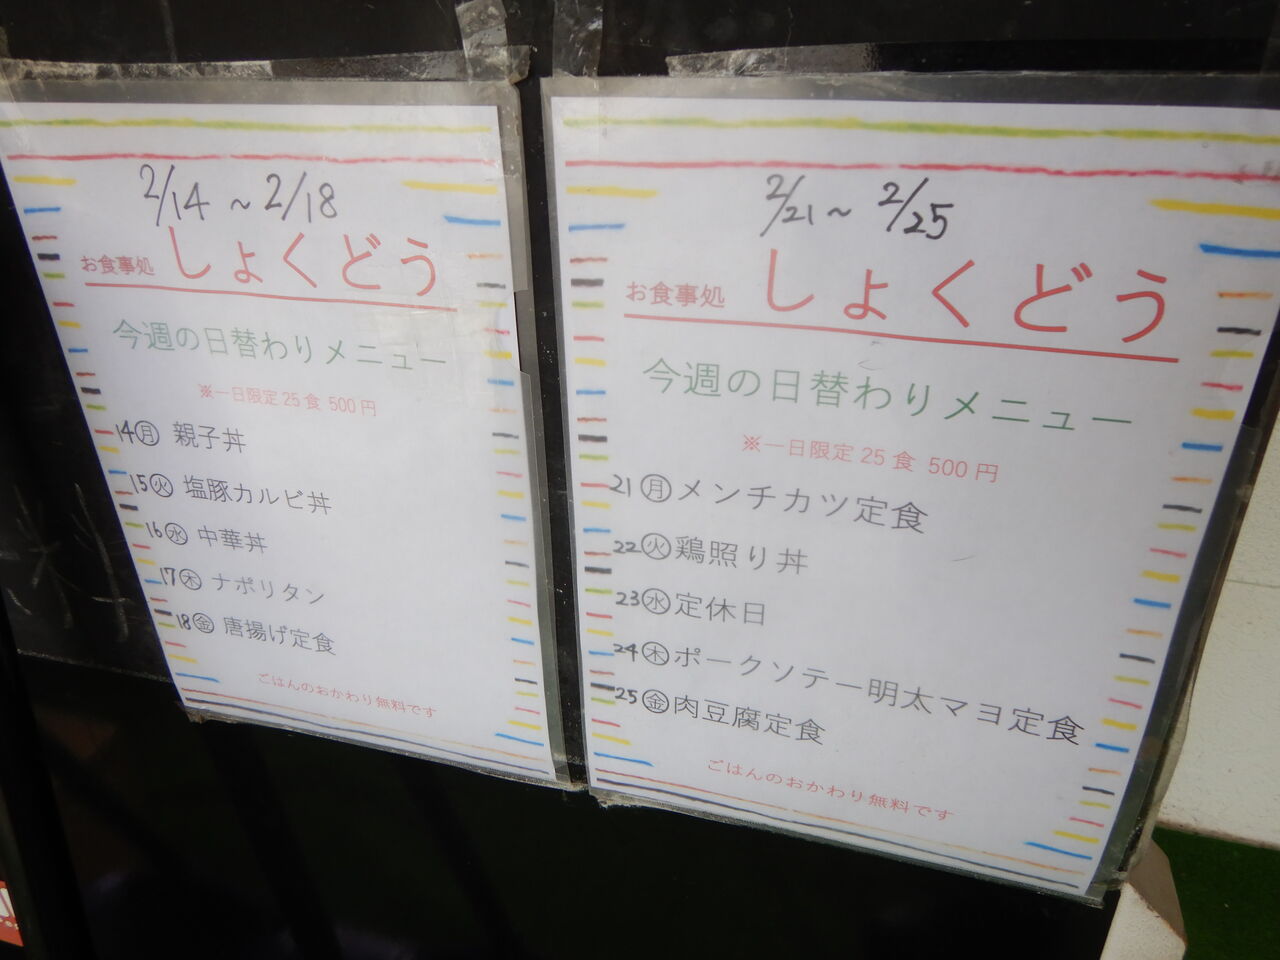 2/14 ~ 2/18
お食事処 しょくどう
今週の日替わりメニュー
※一日限定25食 500円
14㊊ 親子丼
15㊋ 塩豚カルビ丼
16㊌ 中華丼
17㊍ ナポリタン
18㊎ 唐揚げ定食
ごはんのおかわり無料です
2/21 ~ 2/25
お食事処 しょくどう
今週の日替わりメニュー
※一日限定25食 500円
21㊊メンチカツ定食
22㊋鶏照り丼
23㊌定休日
24㊍ポークソテー明太マヨ定食
25㊎肉豆腐定食
ごはんのおかわり無料です